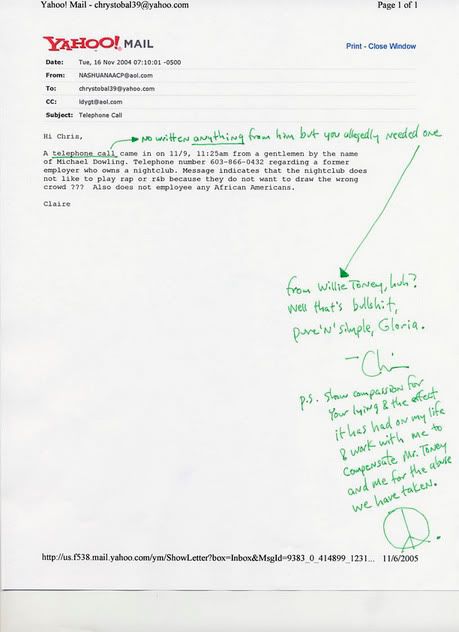 Yahoo! Mail - chrystobal39@yahoo.com Page 1 of 1
YAHOO! MAIL
Print - Close Window
Date: Tue, 16 Nov 2004 07:10:01 -0500
From: NASHUANAACP@aol.com
To: chrystobal39@yahoo.com
CC: ldygt@aol.com
Subject: Telephone Call
Hi Chris,
no written anything from him but you allegedly needed one
A telephone call came in on 11/9, 11:25am from a gentlemen by the name
of Michael Dowling. Telephone number 603-866-0432 regarding a former
employer who owns a nightclub. Message indicates that the nightclub does
not like to play rap or r&b because they do not want to draw the wrong
crowd ??? Also does not employee any African Americans.
Claire
from Willie Toney, huh?
Well that's bullshit,
pure 'N' simple, Gloria.
- Chi
p.s. Show compassion for
your lying & the effect
it has had on my life
& work with me to
compensate Mr. Toney
and me for the abuse
we have taken.
http://us.f538.mail.yahoo.com/ym/ShowLetter?box=Inbox&MsgId=9383_0_414899_1231... 11/6/2005